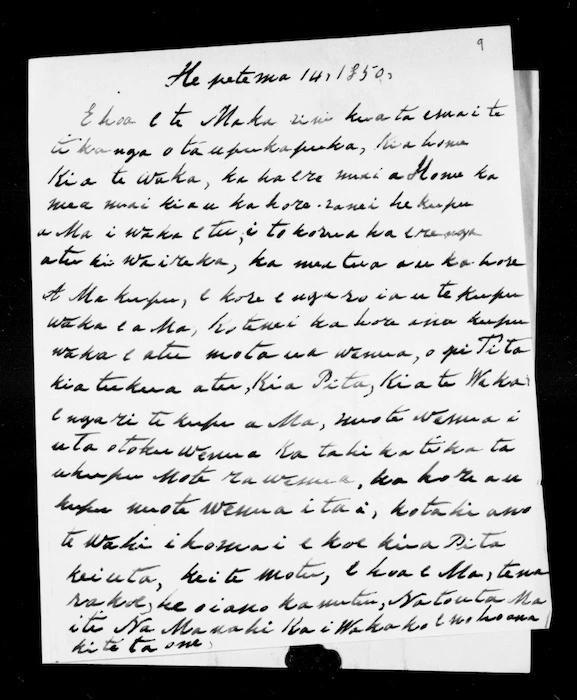 9
He petema 14, 1850,
E hoa e te Maka rini kua ta emai te
ti ka nga o ta u pu ka pu ka, Kia home
Kia te Waka, ka ha ere mai a Home ka
mea mai kia u ka hore ranei he kupu
a Ma i waka e tu, i to korua ha ere nga
atu ki wai reka, ka mea tua a u ka hore
A Ma kupu, e kore e nga ro ia u te kupu
waka e a Ma, Ko tenei ka hore ano kupu
waka e atu mo taua wenua, o pi Ti ta
kia tu kua atu, Kia Pita, Kia te Waka
E nga ri te kupu a Ma, mo te wenua i
uta o to ku wenua Ka tahi ka ti ka ta
u kupu Mo te ra wenua, ka hore a u
kupu mo te Wenua i ta i, ko ta hi ano
te Wahi i ho mai e koe kia Pita
kei uta, kei te motu, E hoa e Ma, tena
ra koe, he oi ano ka mutu, Na to uta Ma
i ti Na Manahi Ka i Waka ko e no ho ana
ki ti ta one,